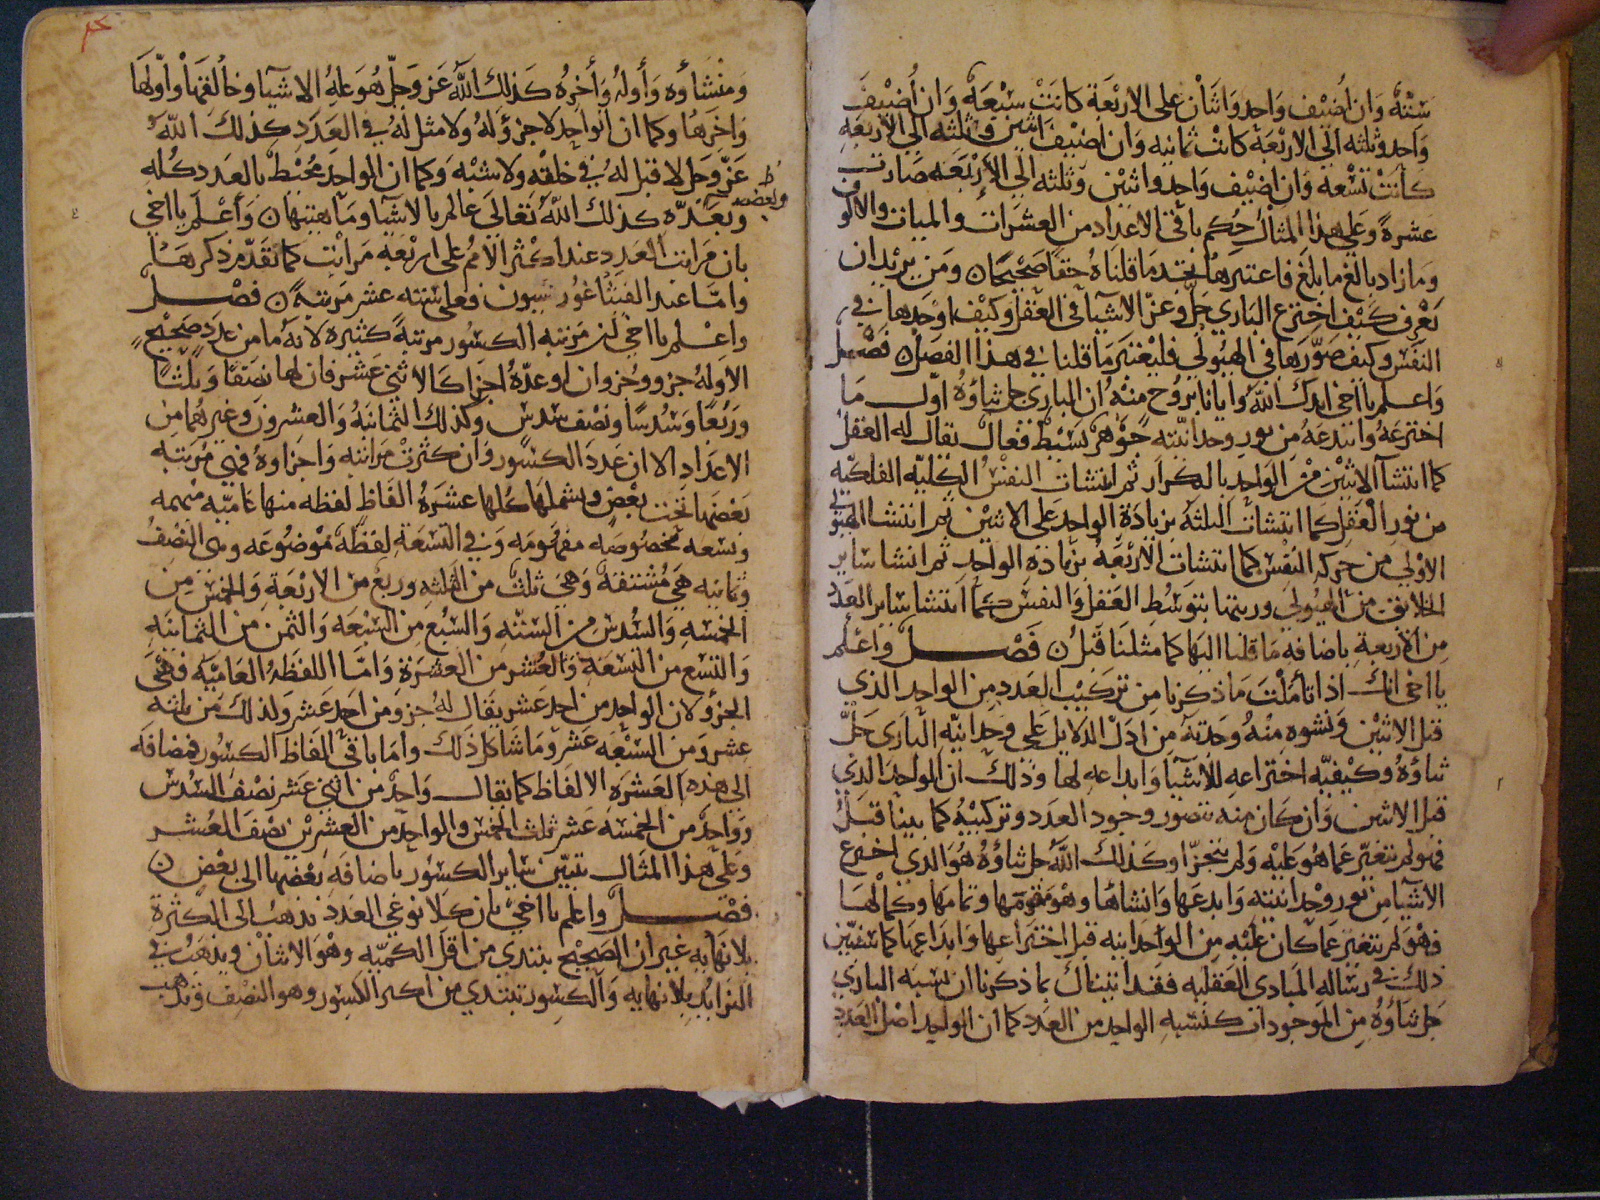 ستة وان اضيف واحد واثنان على الاربعة كانت سبعة وان اضيف
واحد وثلثه الى الاربعة كانت ثمانيه وان اضيف اثنين وثلثه الى الاربعه
كانت تسعه وان اضيف واحد واثنين وثلثه الى الأربعه صارت
عشرة وعلى هذا المثال حكم باقي الاعداد من العشرات والميات والالوف
وما زاد بالغ ما بلغ فاعتبرها تجد ما قلناه حقا صحيحا ن ومن يريد ان
يعرف كيف اخترع الباري جل وعز الاشيا في العقل وكيف اوجدها في
النفس وكيف صورها في الهيولى فليعتبر ما قلنا في هذا الفصل ن فصل
واعلم يا اخي ايدك الله وايانا بروح منه ان البارى جل ثناؤه اول ما
اخترعه وابتدعه من نور وحدانيته جوهر بسيط فعال يقال له العقل
كما انتشا الاثنين من الواحد بالتكرار ثم انتشات النفس الكلية الفلكيه
من نور العقل كما انتشات الثلثة بزيادة الواحد على الاثنين ثم انتشا الهيولى
الاولى من حركة النفس كما انتشات الاربعة بزيادة الواحد ثم انشا ساير
الخلايق من الهيولى ورتبها بتوسط العقل والنفس كما انتشا ساير العدد
من الاربعة باضافة ما قبلها اليها كما مثلنا قبل ن فصل واعلم
يا اخي انك اذا تأملت ما ذكرنا من تركيب العدد من الواحد الذي
قبل الاثنين ونشوه منه وجدته من ادل الدلايل على وحدانية البارى جل
ثناؤه وكيفيه اختراعه للاشيا وابداعه لها وذلك ان الواحد الذي
قبل الاثنين وان كان منه تصور وجود العدد وتركيبه كما بينا قبل
فهو لم يتغير عما هو عليه ولم يتجزا وكذلك الله جل ثناؤه هو الذي اخترع
الاشيا من نور وحدانيته وابدعها وانشاها وهو مقومها وتمامها وكمالها
فهو لم يتغير عما كان عليه من الوحدانيه قبل اختراعها وابداعها كما سنبين
ذلك في رساله المبادى العقليه فقد انبناك بما ذكرنا ان نسبة الباري
جل ثناؤه من الموجودات كنسبه الواحد من العدد كما ان الواحد اصل العدد
ومنشاؤه واوله واخره كذلك الله عز وجل هو علة الاشيا وخالقها واولها
واخرها وكما ان الواحد لا جزو له ولا مثل له في العدد كذلك الله
عز وجل لا قبل له في خلقه ولا شبه وكما ان الواحد محيط بالعدد كله
ويعده كذلك الله تعالى عالم بالاشيا وماهيتها ن واعلم يا اخي
بان مراتب العدد عند اكثر الامم على اربعه مراتب كما تقدم ذكرها
واما عند الفيثاغوريون فعلى ستة عشر مرتبة ن فصل
واعلم يا اخي ان مرتبه الكسور مرتبة كثيرة لانه ما من عدد صحيح
الا وله جزو وجزوان او عدة اجزا كالاثني عشر فان لها نصفا وثلثا
وربعا وسدسا ونصف سدس وكذلك الثمانية والعشرون وغيرهما من
الاعداد الا ان عدد الكسور وان كثرت مراتبه واجزاوه فهي مرتبه
بعضها تحت بعض ويشملها كلها عشرة الفاظ لفظه منها عاميه مبهمه
وتسعه مخصوصه مفهومه وفي التسعة لفظة موضوعه وهي النصف
وثمانيه هي مشتقه وهي ثلث من الثلثه وربع من الاربعة والخمس من
الخمسه والسدس من الستة والسبع من السبعه والثمن من الثمانيه
والتسع من التسعة والعشر من العشرة واما اللفظة العاميه فهي
الجزو لان الواحد من احد عشر يقال له جزو من احد عشر وكذلك من ثلثة
عشر ومن السبعه عشر وما شاكل ذلك واما باقي الفاظ الكسور فمضافه
الى هذه العشرة الالفاظ كما يقال واحد من اثني عشر نصف السدس
وواحد من الخمسه عشر ثلث الخمس والواحد من العشرين نصف العشر
وعلى هذا المثال تبين ساير الكسور باضافة بعضها الى بعض ن
فصل واعلم يا اخي بان كلا نوعي العدد يذهب الى الكثرة
بلا نهايه غير ان الصحيح يبتدى من اقل الكميه وهو الاثنان ويذهب في
التزايد بلا نهايه والكسور تبتدي من اكبر الكسور وهو النصف وتذهب